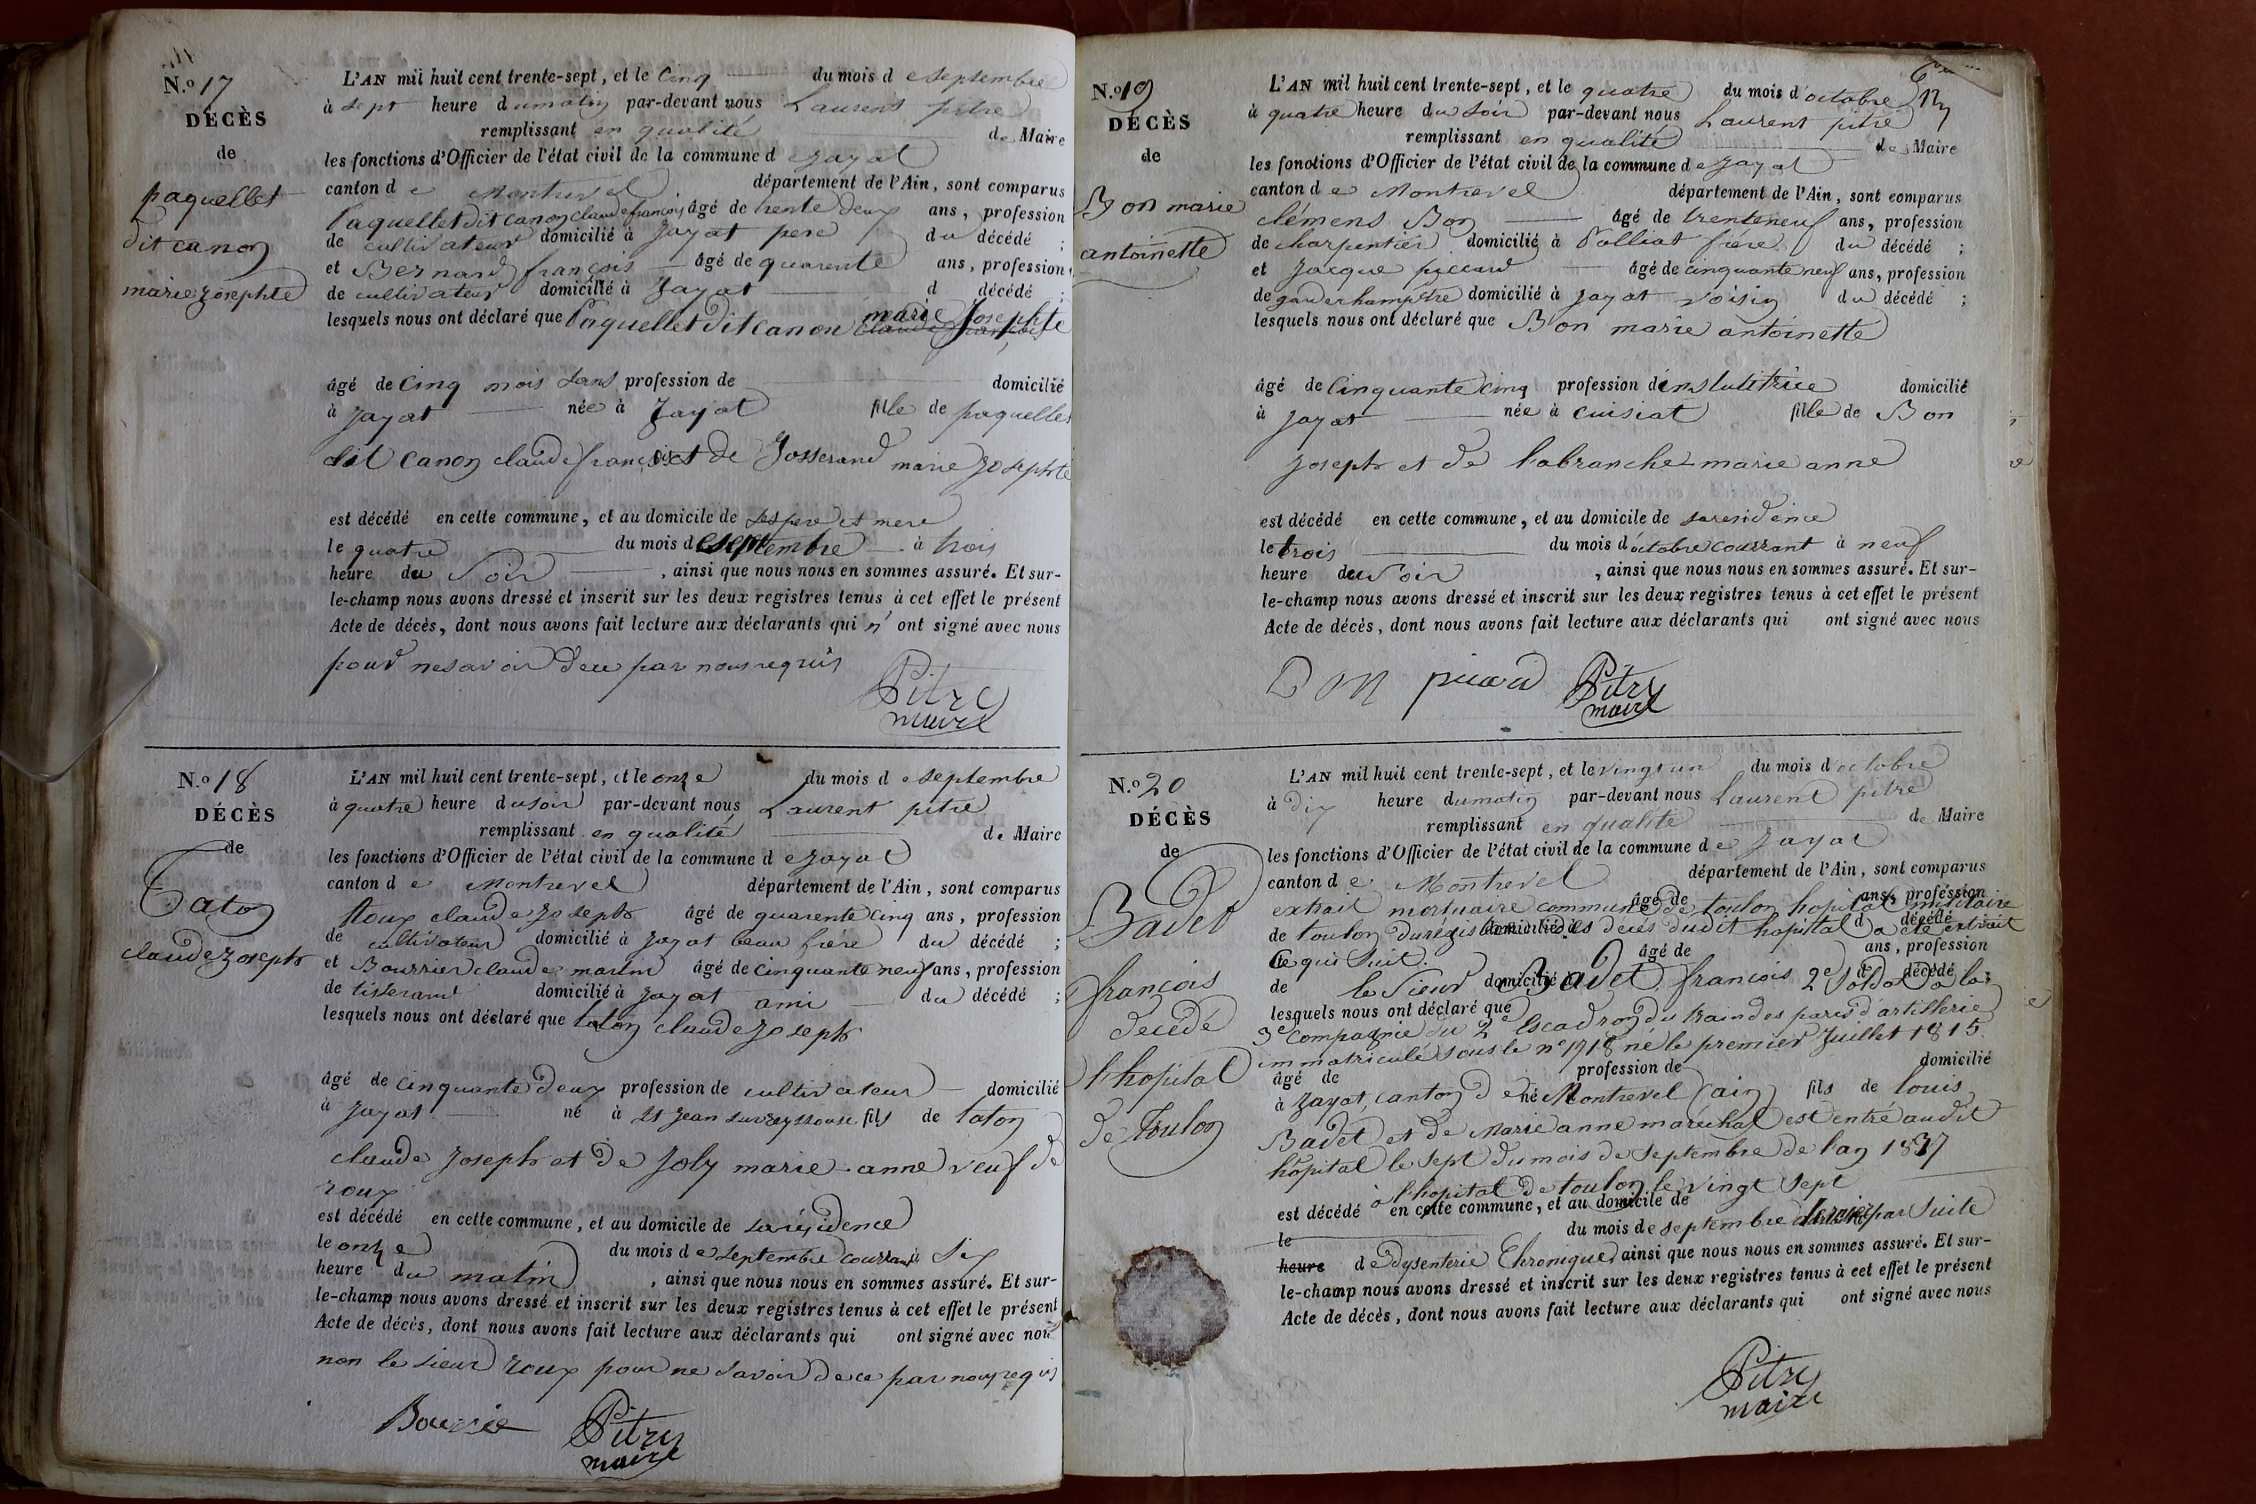 N.o 17
DÉCÈS
de
paquellet
dit canon
marie Josephte
L'AN mil huit cent trente-sept, et le cinq du mois d e septembre
à sept heure d u matin par-devant nous Laurent pitre
remplissant en qualité de Maire
les fonctions d'Officier de l'état civil de la commune d e Jayat
canton d e Montrevel département de l'Ain, sont comparus
Paquellet dit canon claude françois âgé de trente deux ans, profession
de cultivateur domicilié à Jayat pere du décédé ;
et Bernard françois âgé de quarente ans, profession
de cultivateur domicilié à Jayat d décédé ;
lesquels nous ont déclaré que Paquellet dit canon marie Josephte
âgé de cinq mois sans profession de domicilié
à Jayat née à Jayat fille de paquellet
dit canon claude françois et de Josserand marie Josephte
est décédé en cette commune, et au domicile de ses pere et mere
le quatre du mois d e septembre à trois
heure du soir , ainsi que nous nous en sommes assuré. Et sur-
le-champ nous avons dressé et inscrit sur les deux registres tenus à cet effet le présent
Acte de décès, dont nous avons fait lecture aux déclarants qui n' ont signé avec nous
pour ne savoir de ce par nous requis
Pitre
maire
N.o 18
DÉCÈS
de
Taton
claude Joseph
L'AN mil huit cent trente-sept, et le onze du mois d e septembre
à quatre heure du soir par-devant nous Laurent pitre
remplissant en qualité de Maire
les fonctions d'Officier de l'état civil de la commune d e Jayat
canton d e Montrevel département de l'Ain, sont comparus
Roux claude Joseph âgé de quarente cinq ans, profession
de cultivateur domicilié à Jayat beau frère du décédé ;
et Bourrier claude marin âgé de cinquante neuf ans, profession
de tisserand domicilié à Jayat ami du décédé ;
lesquels nous ont déclaré que taton claude Joseph
âgé de cinquante deux profession de cultivateur domicilié
à Jayat né à St Jean sur reyssouse fils de taton
claude Joseph et de Joly marie anne veuf de
roux
est décédé en cette commune, et au domicile de sa résidence
le onze du mois d e septembre courrant à six
heure du matin , ainsi que nous nous en sommes assuré. Et sur-
le-champ nous avons dressé et inscrit sur les deux registres tenus à cet effet le présent
Acte de décès, dont nous avons fait lecture aux déclarants qui ont signé avec nous
non le sieur roux pour ne savoir de ce par nous requis
Bourrier Pitre
maire
N.o 19
DÉCÈS
de
Bon marie
antoinette
L'AN mil huit cent trente-sept, et le quatre du mois d'octobre
à quatre heure du soir par-devant nous Laurent pitre
remplissant en qualité de Maire
les fonctions d'Officier de l'état civil de la commune d e Jayat
canton d e Montrevel département de l'Ain, sont comparus
clémens Bon âgé de trente neuf ans, profession
de charpentier domicilié à Polliat frère du décédé ;
et Jacque piccard âgé de cinquante neuf ans, profession
de garderchampêtre domicilié à Jayat voisin du décédé ;
lesquels nous ont déclaré que Bon marie antoinette
âgé de cinquante cinq profession d'institutrice domicilié
à Jayat née à cuisiat fille de Bon
Joseph et de labranche marie anne
est décédé en cette commune, et au domicile de sa residence
le trois du mois d'octobre courrant à neuf
heure du soir , ainsi que nous nous en sommes assuré. Et sur-
le-champ nous avons dressé et inscrit sur les deux registres tenus à cet effet le présent
Acte de décès, dont nous avons fait lecture aux déclarants qui ont signé avec nous
Bon picard Pitre
maire
N.o 20
DÉCÈS
de
Badet
françois
decédé
l'hopital
de Toulon
L'AN mil huit cent trente-sept, et le vingt un du mois d'octobre
à dix heure du matin par-devant nous Laurent pitre
remplissant en qualité de Maire
les fonctions d'Officier de l'état civil de la commune d e Jayat
canton d e Montrevel département de l'Ain, sont comparus
extrait mortuaire commune de toulon hopital militaire âgé de ans, profession
de toulon du régistre des décés dudit hopital a été extrait domicilié à d décédé
ce qui suit. âgé de ans, profession
de le Sieur Badet, françois 2e Soldat à la domicilié à d décédé ;
lesquels nous ont déclaré que
3e compagnie du 2e Escadron du train des parcs d'artillerie
immatriculé sous le n° 1918 né le premier Juillet 1815.
âgé de profession de domicilié
à Jayat, canton d e né Montrevel (ain) fils de louis
Badet et de Marie anne maréchal est entré audit
hôpital le sept du mois de Septembre de l'an 1837
à l'hopital de toulon le vingt sept
est décédé en cette commune, et au domicile de
le du mois de septembre par suite
heure de dysenterie Chronique, ainsi que nous nous en sommes assuré. Et sur-
le-champ nous avons dressé et inscrit sur les deux registres tenus à cet effet le présent
Acte de décès, dont nous avons fait lecture aux déclarants qui ont signé avec nous
Pitre
maire